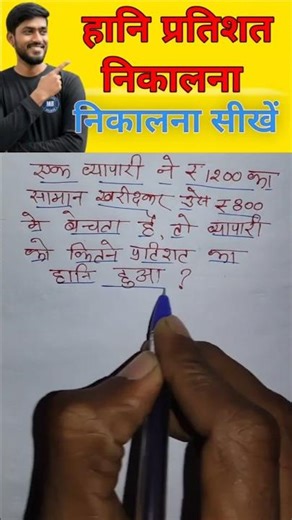 हानि प्रतिशत
निकालना
निकालना सीखें
एक व्यापारी ने ₹ 1200 का
सामान खरीदकर उसे ₹ 800
मे बेचता है, तो व्यापारी
को कितने प्रतिशत का
हानि हुआ ?